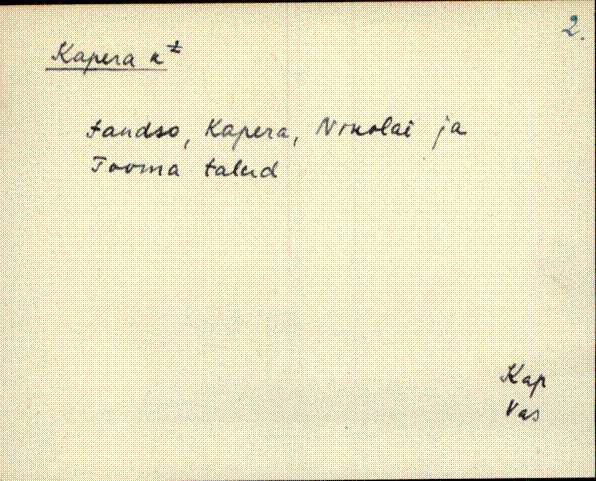 2.
Kapera k±
tandso, Kapera, Nikolai ja
Tooma talud
Kap
Vas